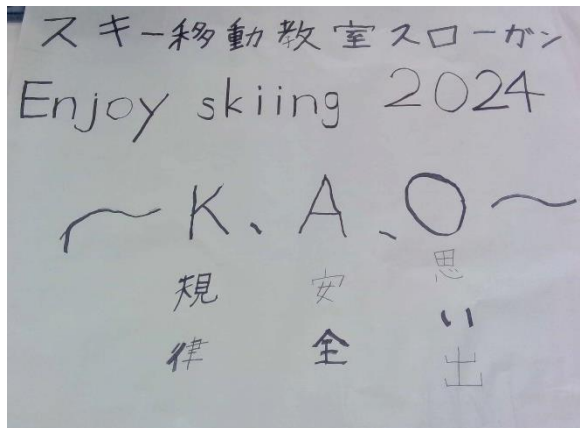 スキー移動教室スローガン
Enjoy skiing 2024
～K、A、O～
規律
安全
思い出